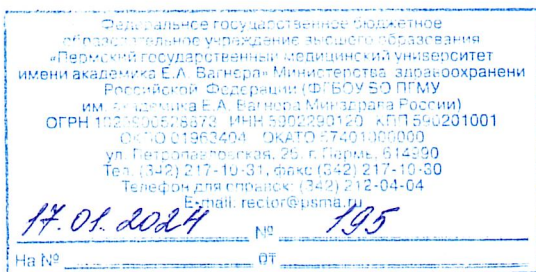 Федеральное государственное бюджетное
образовательное учреждение высшего образования
«Пермский государственный медицинский университет
имени академика Е.А. Вагнера» Министерства здравоохранени
Российской Федерации (ФГБОУ ВО ПГМУ
им. академика Е.А. Вагнера Минздрава России)
ОГРН ИНН 5902290120 КПП 590201001
ОКПО 01963404 ОКАТО 57401000000
ул. Петропавловская, 26, г. Пермь, 614990
Тел. (342) 217-10-31, факс (342) 217-10-30
Телефон для справок: (342) 212-04-04
E-mail: rector@psma.ru
17.01.2024 № 195
На № от